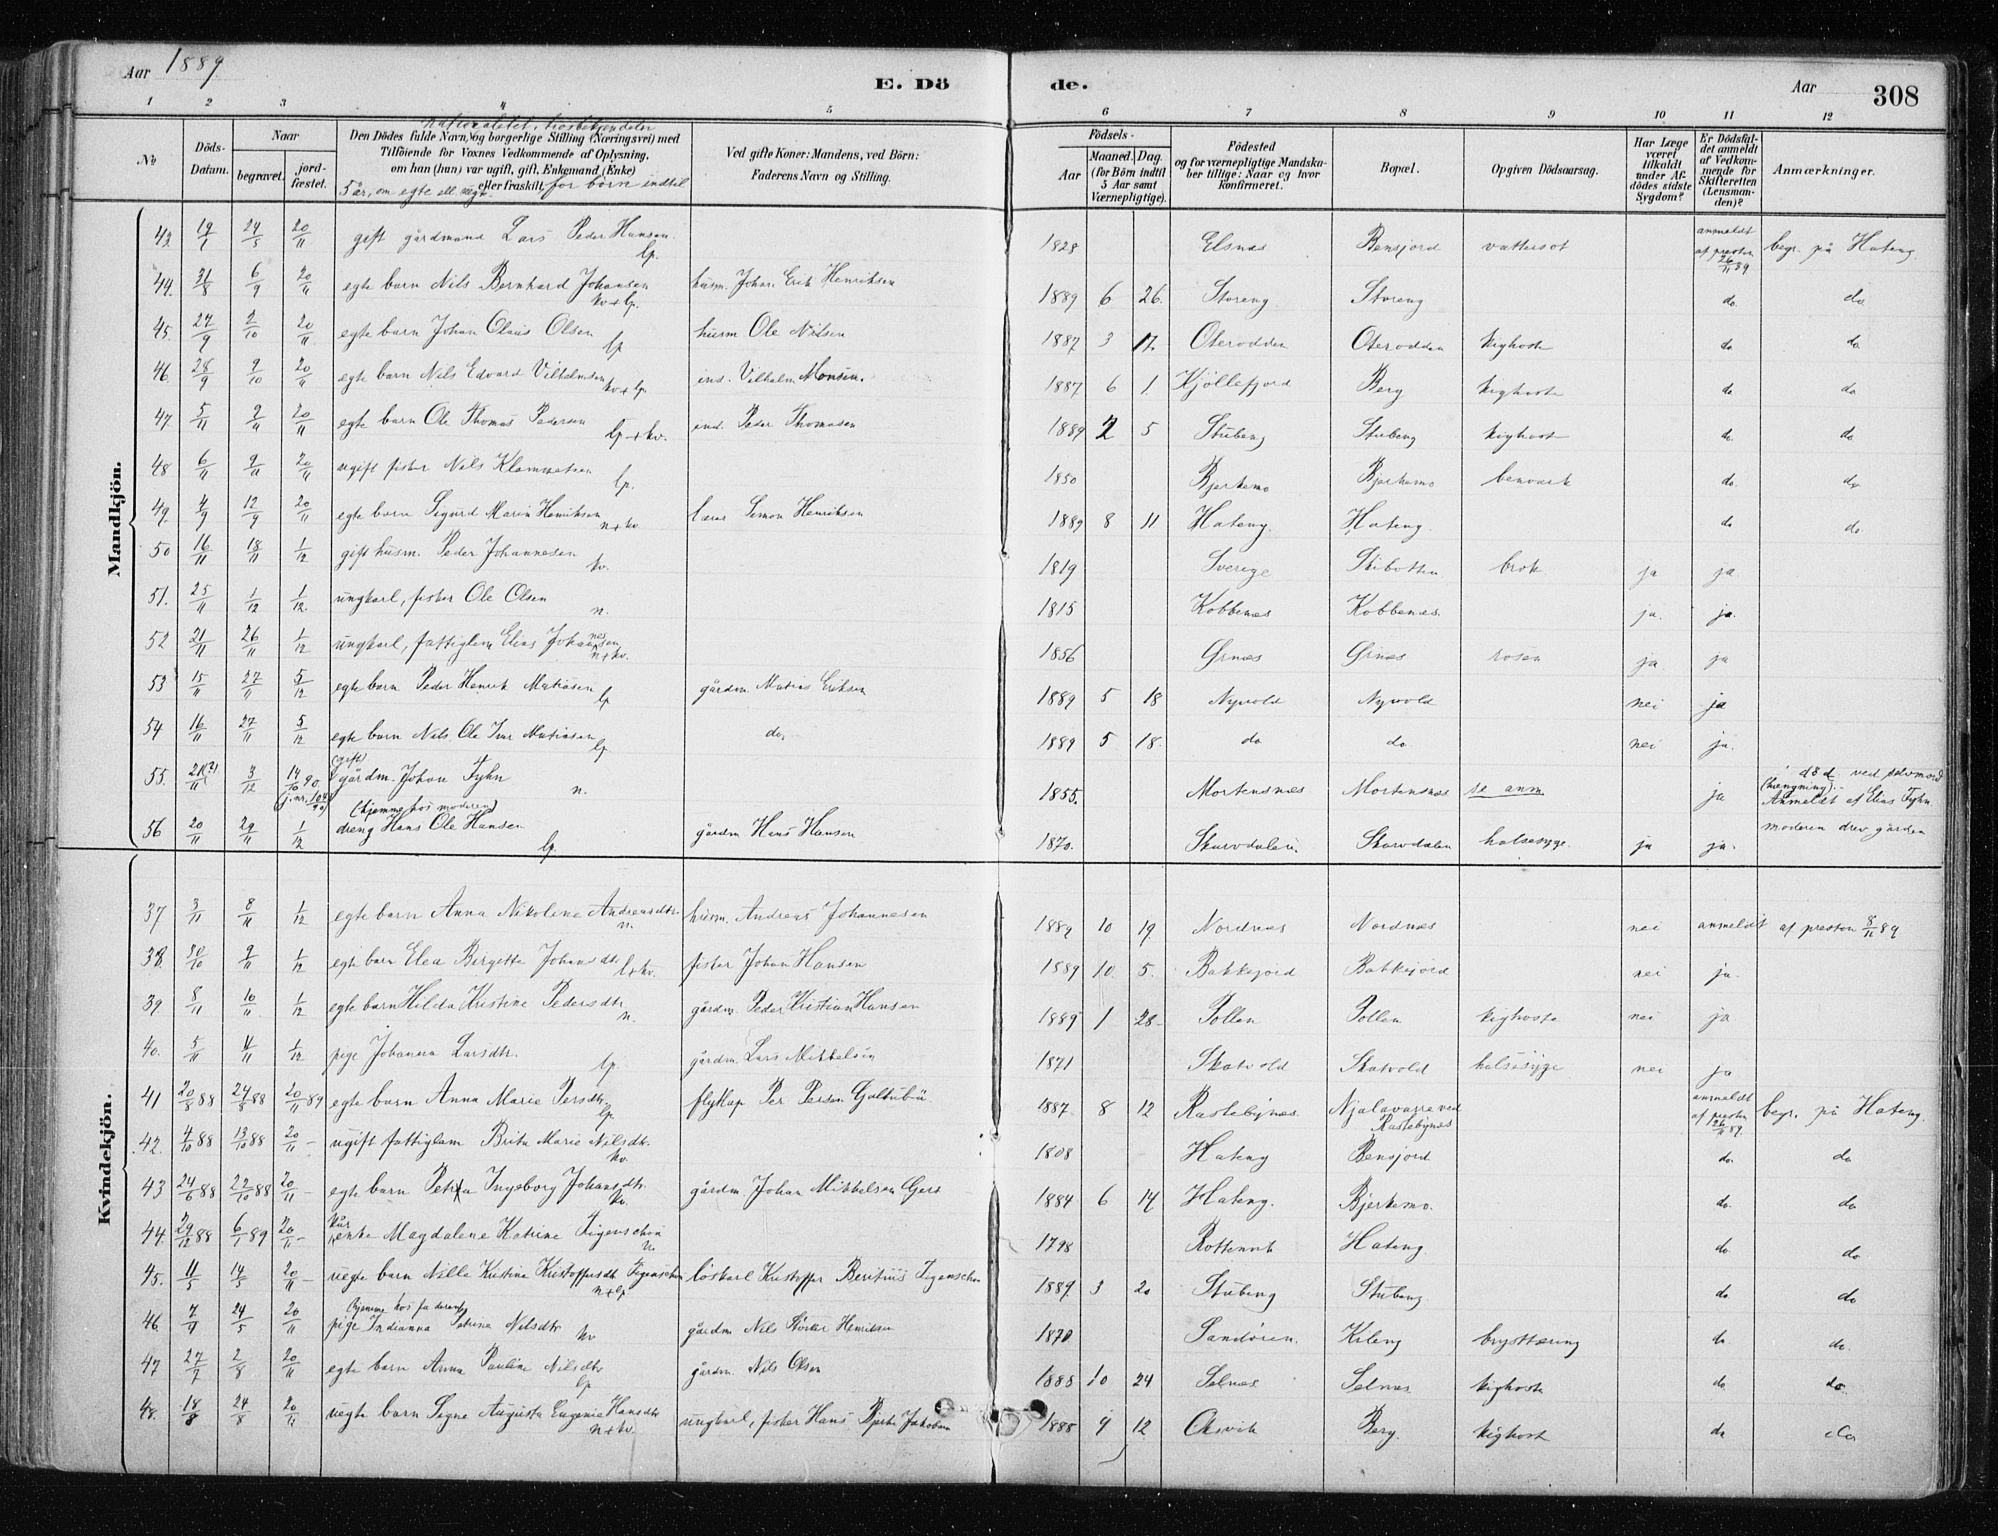 Aar 1889
E. Dö de.
Aar 308
1 2 3 4 5 6 7 8 9 10 11 12
No
Döds-Datum.
Naar
begravet.
jord-fæstet.
nationalitet, trosbekjendelse
Den Dödes fulde Navn, og borgerlige Stilling (Næringsvei) med
Tilföiende for Voxnes Vedkommende af Oplysning,
om han (hun) var ugift, gift, Enkemand (Enke)
eller fraskilt, for børn indtil
5 år, om egte ell. uegte.
Ved gifte Koner: Mandens, ved Börn:
Faderens Navn og Stilling.
Födsels-
Aar
Maaned. Dag.
(for Börn indtil
5 Aar samt
Værnepligtige).
Födested
og for værnepligtige Mandska-
ber tillige: Naar og hvor
konfirmeret.
Bopæl.
Opgiven Dödsaarsag.
Har Læge
været
tilkaldt
under Af-
dödes sidste
Sygdom?
Er Dödsfal-
det anmeldt
af Vedkom-
mende for
Skifteretten
(Lensman-
den)?
Anmærkninger.
Mandkjön.
43 19/1 24/5 20/11 gift gårdmand Lars Peder Hansen. lp. 1828 Elsnæs Bensjord vattersot anmeldt af presten 26/11 89 begr. på Hateng
44. 31/8 6/9 20/11 egte barn Nils Bernhard Johansen kv+lp. husm. Johan Erik Henriksen 1889 6 26. Storeng Storeng do. do
45. 27/9 2/10 20/11 egte barn Johan Olaus Olsen lp husm Ole Nilsen 1887 3 17. Oterodden Oterodden kighoste do do
46. 28/9 9/10 20/11 egte barn Nils Edvard Vilhelmsen kv+lp. ind. Vilhelm Monsen. 1887 6 1. Kjöllefjord Berg kighoste do do
47. 5/11 9/11 20/11 egte barn Ole Thomas Pedersen lp+kv. ind. Peder Thomasen 1889 2 5 Stubeng Stubeng kighoste do. do
48 6/11 9/11 20/11 ugift fisker Nils Klemmetsen lp. 1850 Bjerkemo Bjerkemo benværk do. do
49. 4/9 12/9 20/11 egte barn Sigurd Marin Henriksen n+kv. lærer Simon Henriksen 1889 8 11 Hateng. Hateng. do do
50 16/11 18/11 1/12 gift husm. Peder Johannesen kv. 1819 Sverige Skibotten brok ja ja
51. 25/11 1/12 1/12. ungkarl, fisker Ole Olsen n. 1815 Kobbenæs Kobbenæs. ja. ja.
52 21/11 26/11 1/12 ungkarl, fattiglem Elias Johannessen n+kv. 1856 Grnæs Grnæs rosen ja ja
53 15/11 27/11 5/12 egte barn Peder Henrik Matiasen lp gårdm. Matias Eriksen 1889 5 18 Nyvold Nyvold nei ja
54 16/11 27/11 5/12 egte barn Nils Ole Ivar Matiasen lp do. 1889 5 18. do do nei ja.
55. 21/11 (?) 3/12 14/10 90. (j.nr. 104/90) (gift) gårdm. Johan Fyhn n. 1855. Mortensnæs Mortensnæs se anm ja död ved selvmord (hængning). - Anmeldt af Elias Fyhn
56 20/11 29/11 1/12 (hjemme hos moderen) dreng Hans Ole Hansen lp. gårdm Hans Hansen 1870. Skarvdalen. Skarvdalen halssyge. ja ja. moderen drev gården
Kvindekjön.
37 3/11 8/11 1/12 egte barn Anna Nikoline Andreasdtr. n. husm. Andreas Johannesen 1889 10 19. Nordnæs Nordnæs nei anmeldt af presten 8/11 89
38. 30/10 9/11 1/12 egte barn Elea Bergette Johansdtr l+kv. fisker Johan Hansen 1889 10. 5. Bakkejord Bakkejord nei ja.
39 8/11 10/11. 1/12 egte barn Hilda Kristine Pedersdtr. n. gårdm. Peder Kristian Hansen 1889 1 28. Pollen Pollen kighoste nei ja
40. 5/11 11/11 1/12 pige Johanna Larsdtr. lp gårdm. Lars Mikkelsen 1871 Skatvold Skatvold halssyge nei ja
41 20/8 88 24/8 88 20/11 89 egte barn Anna Marie Persdtr. lp. flytlap Per Persen Galtubu 1887 8 12 Rastebynæs. Njalavarre ved Rastebynæs anmeldt af presten 26/11 89. begr. på Hateng.
42. 4/10 88 13/10 88 20/11 - ugift fattiglem Brita Marie Nilsdtr. kv. 1808 Hateng Bensjord do. do
43 24/6 88 22/10 88 20/11 - egte barn Petra Ingeborg Johansdtr. kv. gårdm. Johan Mikkelsen Gjers 1884 6 14 Hateng. Bjerkemo. do. do
44. 29/12 88 6/1 89 20/11 - kår enke Magdalene Katrine Figenschou n. 1798 Rottenvik Hateng. do do
45. 11/5 14/5 20/11 - uegte barn Nille Kristine Kristoffersdtr Figenschou n+lp löskarl Kristoffer Beritius Figenschou 1889 3 20 Stubeng Stubeng. do do
46 7/4 24/5 20/11 (hjemme hos faderen) pige Indianna Petrine Nilsdtr kv gårdm Nils Henriksen 1870 Sandören. Kileng brysttæring do do.
47 27/7 2/8 20/11 egte barn Anna Pauline Nilsdtr lp gårdm. Nils Olsen 1888 10 24 Selnæs Selnæs kighoste do do.
48. 18/8 24/8 20/11 uegte barn Signe Augusta Eugenie Hansdtr n+kv. ungkarl, fisker Hans Jakobsen 1888 9 12 Oksvik Berg. kighoste do do